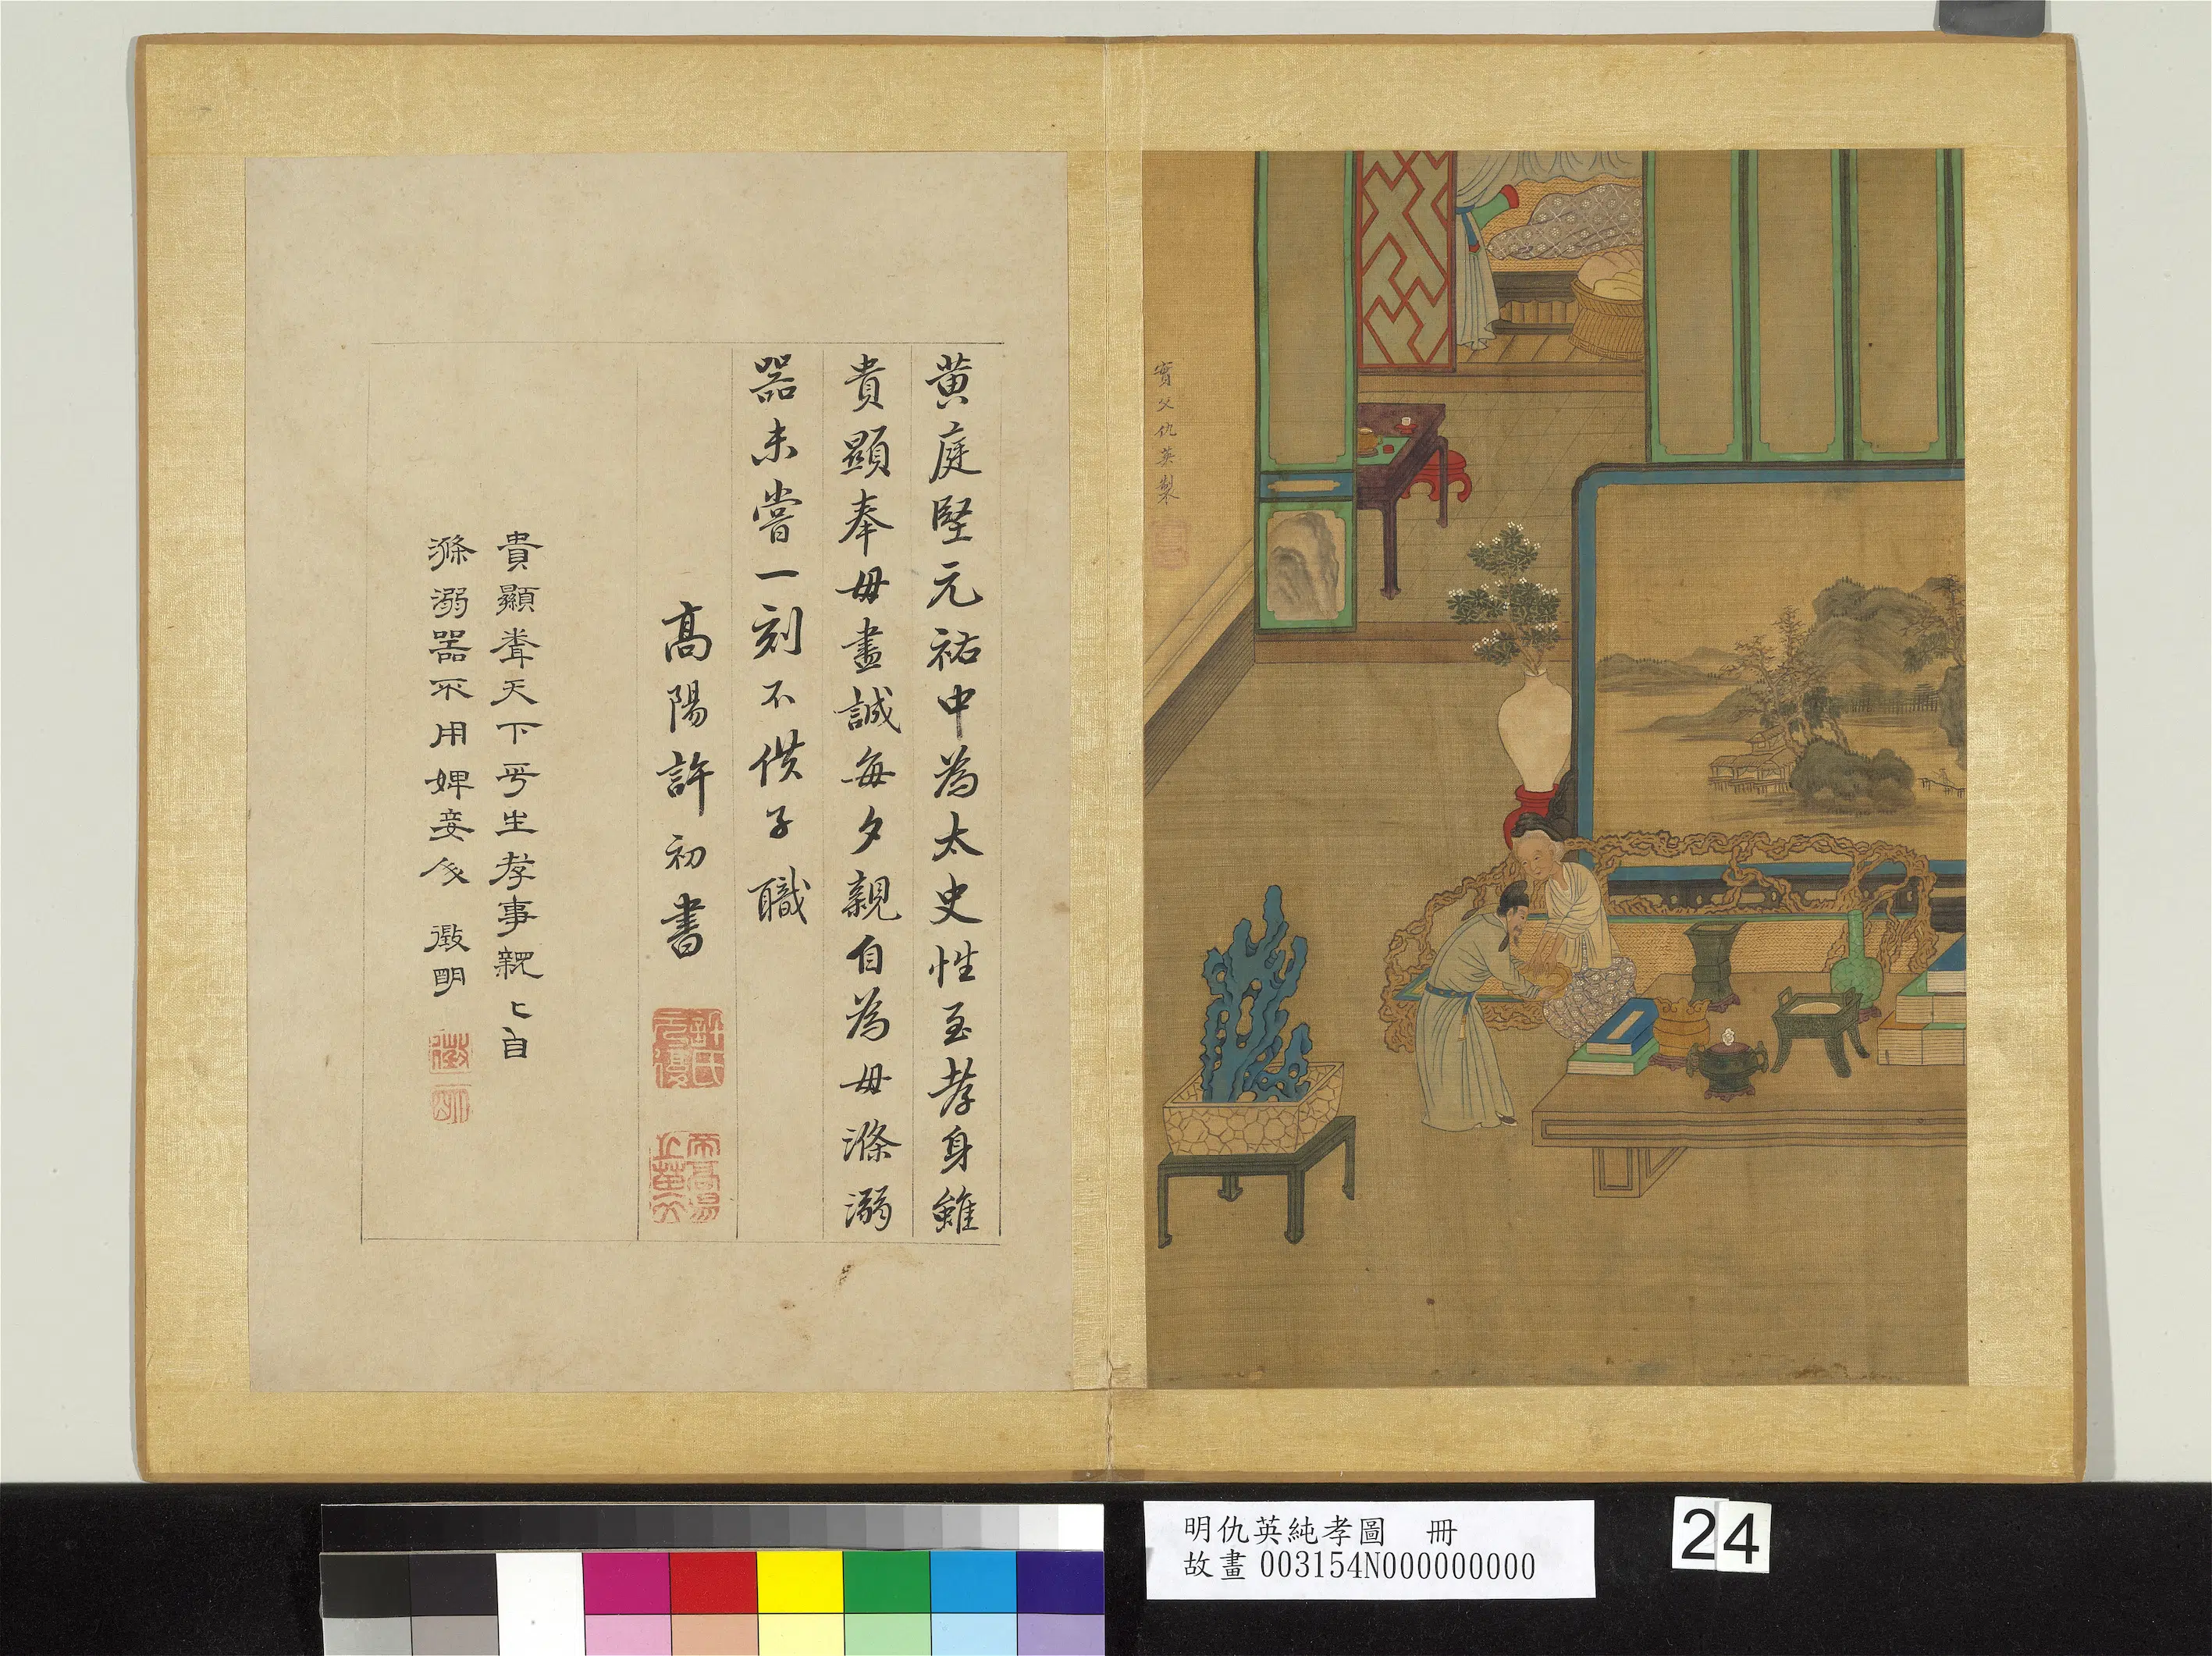 實父仇英製
黃庭堅元祐中為太史性至孝身雖
貴顯奉母盡誠每夕親自為母滌溺
器未嘗一刻不供子職
高陽許初書
許氏元復
貴顯聞天下平生孝事親〻自
滌溺器不用婢妾人 徵明
徵
明
明仇英純孝圖 冊
故畫 003154N000000000
24